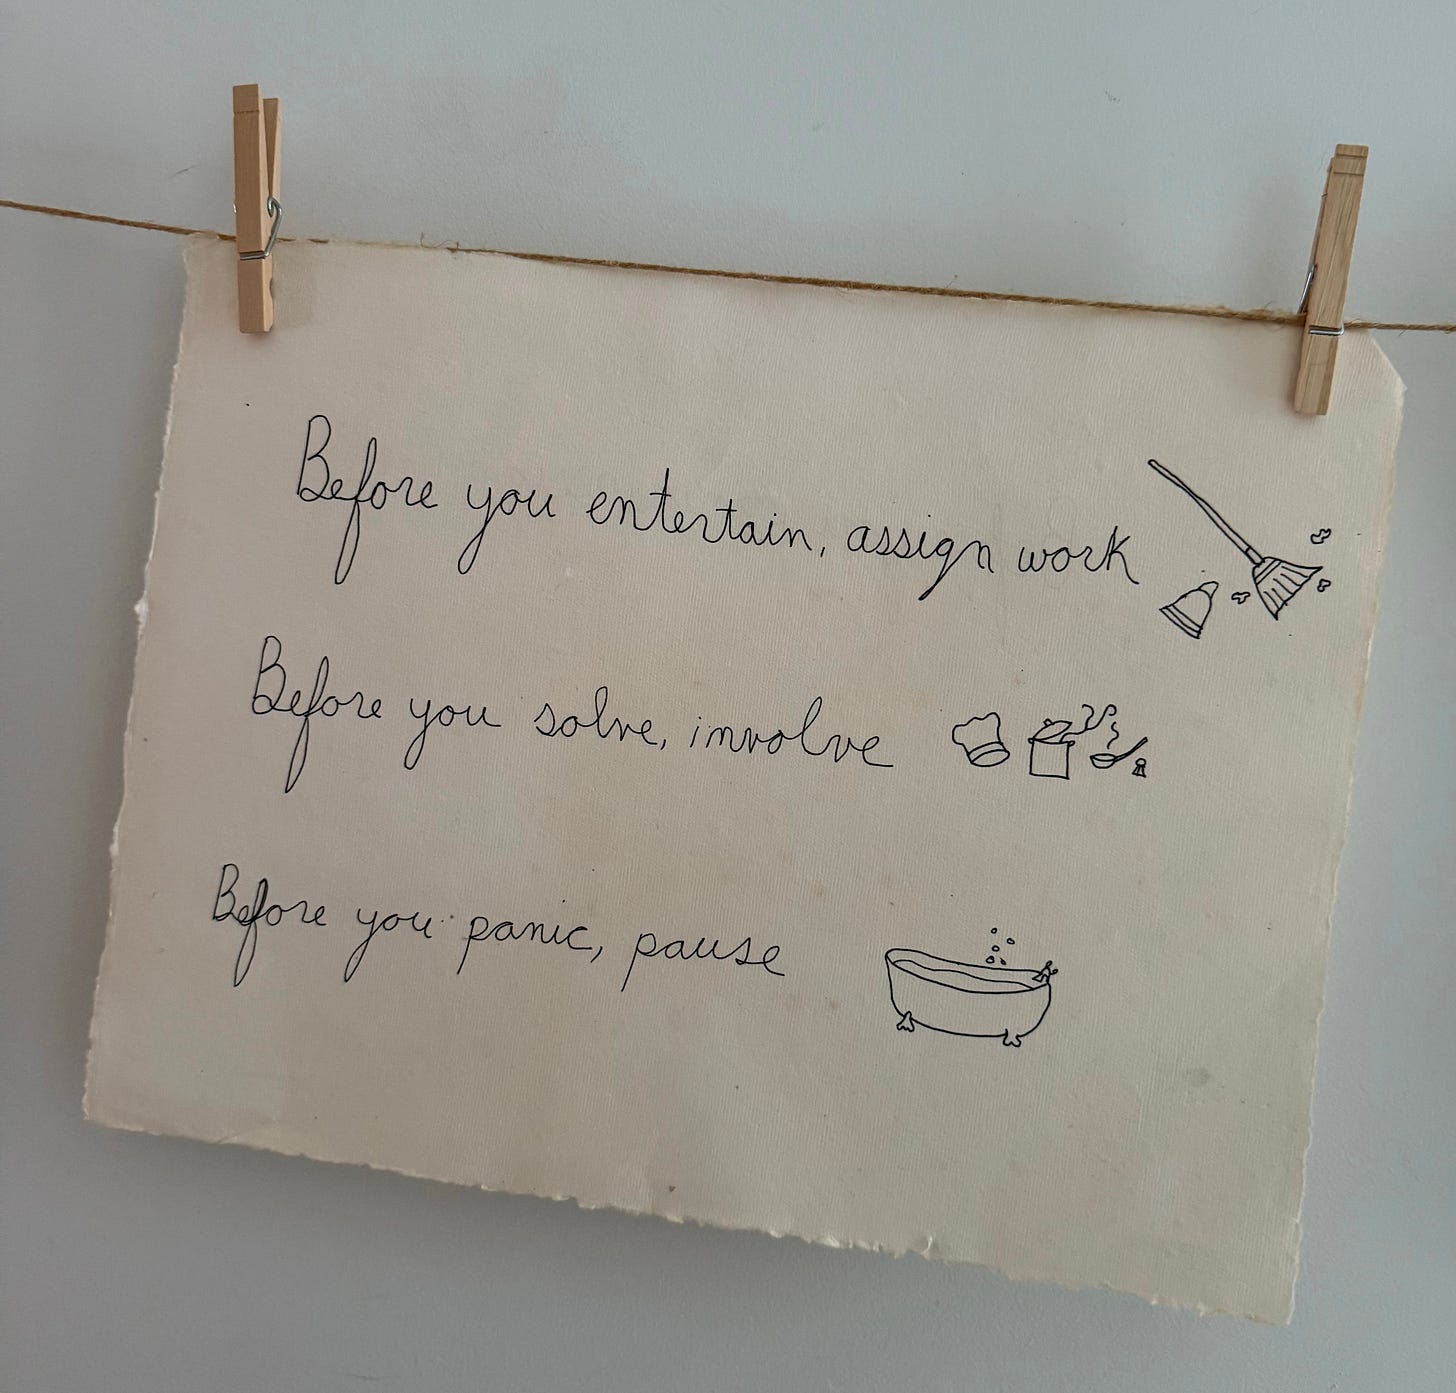 Before you entertain, assign work
Before you solve, involve
Before you panic, pause